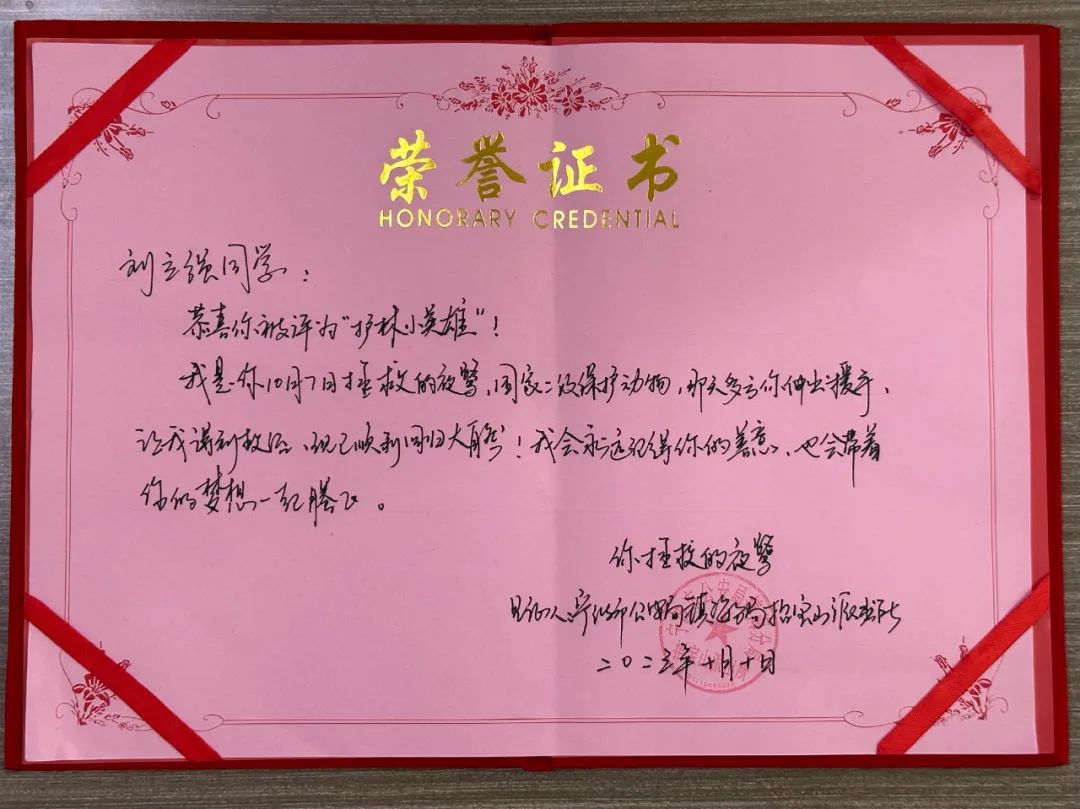 荣誉证书
HONORARY CREDENTIAL
刘立强同学:
恭喜你被评为“护林小英雄”!
我是你10月7日拯救的夜鹭,国家二级保护动物,那天多亏你伸出援手,
让我得到救治,现已顺利回归大自然!我会永远记得你的善意,也会带着
你的梦想一起腾飞。
你拯救的夜鹭
见证人:宁波市公安局镇海分局招宝山派出所
二〇二三年十月十日